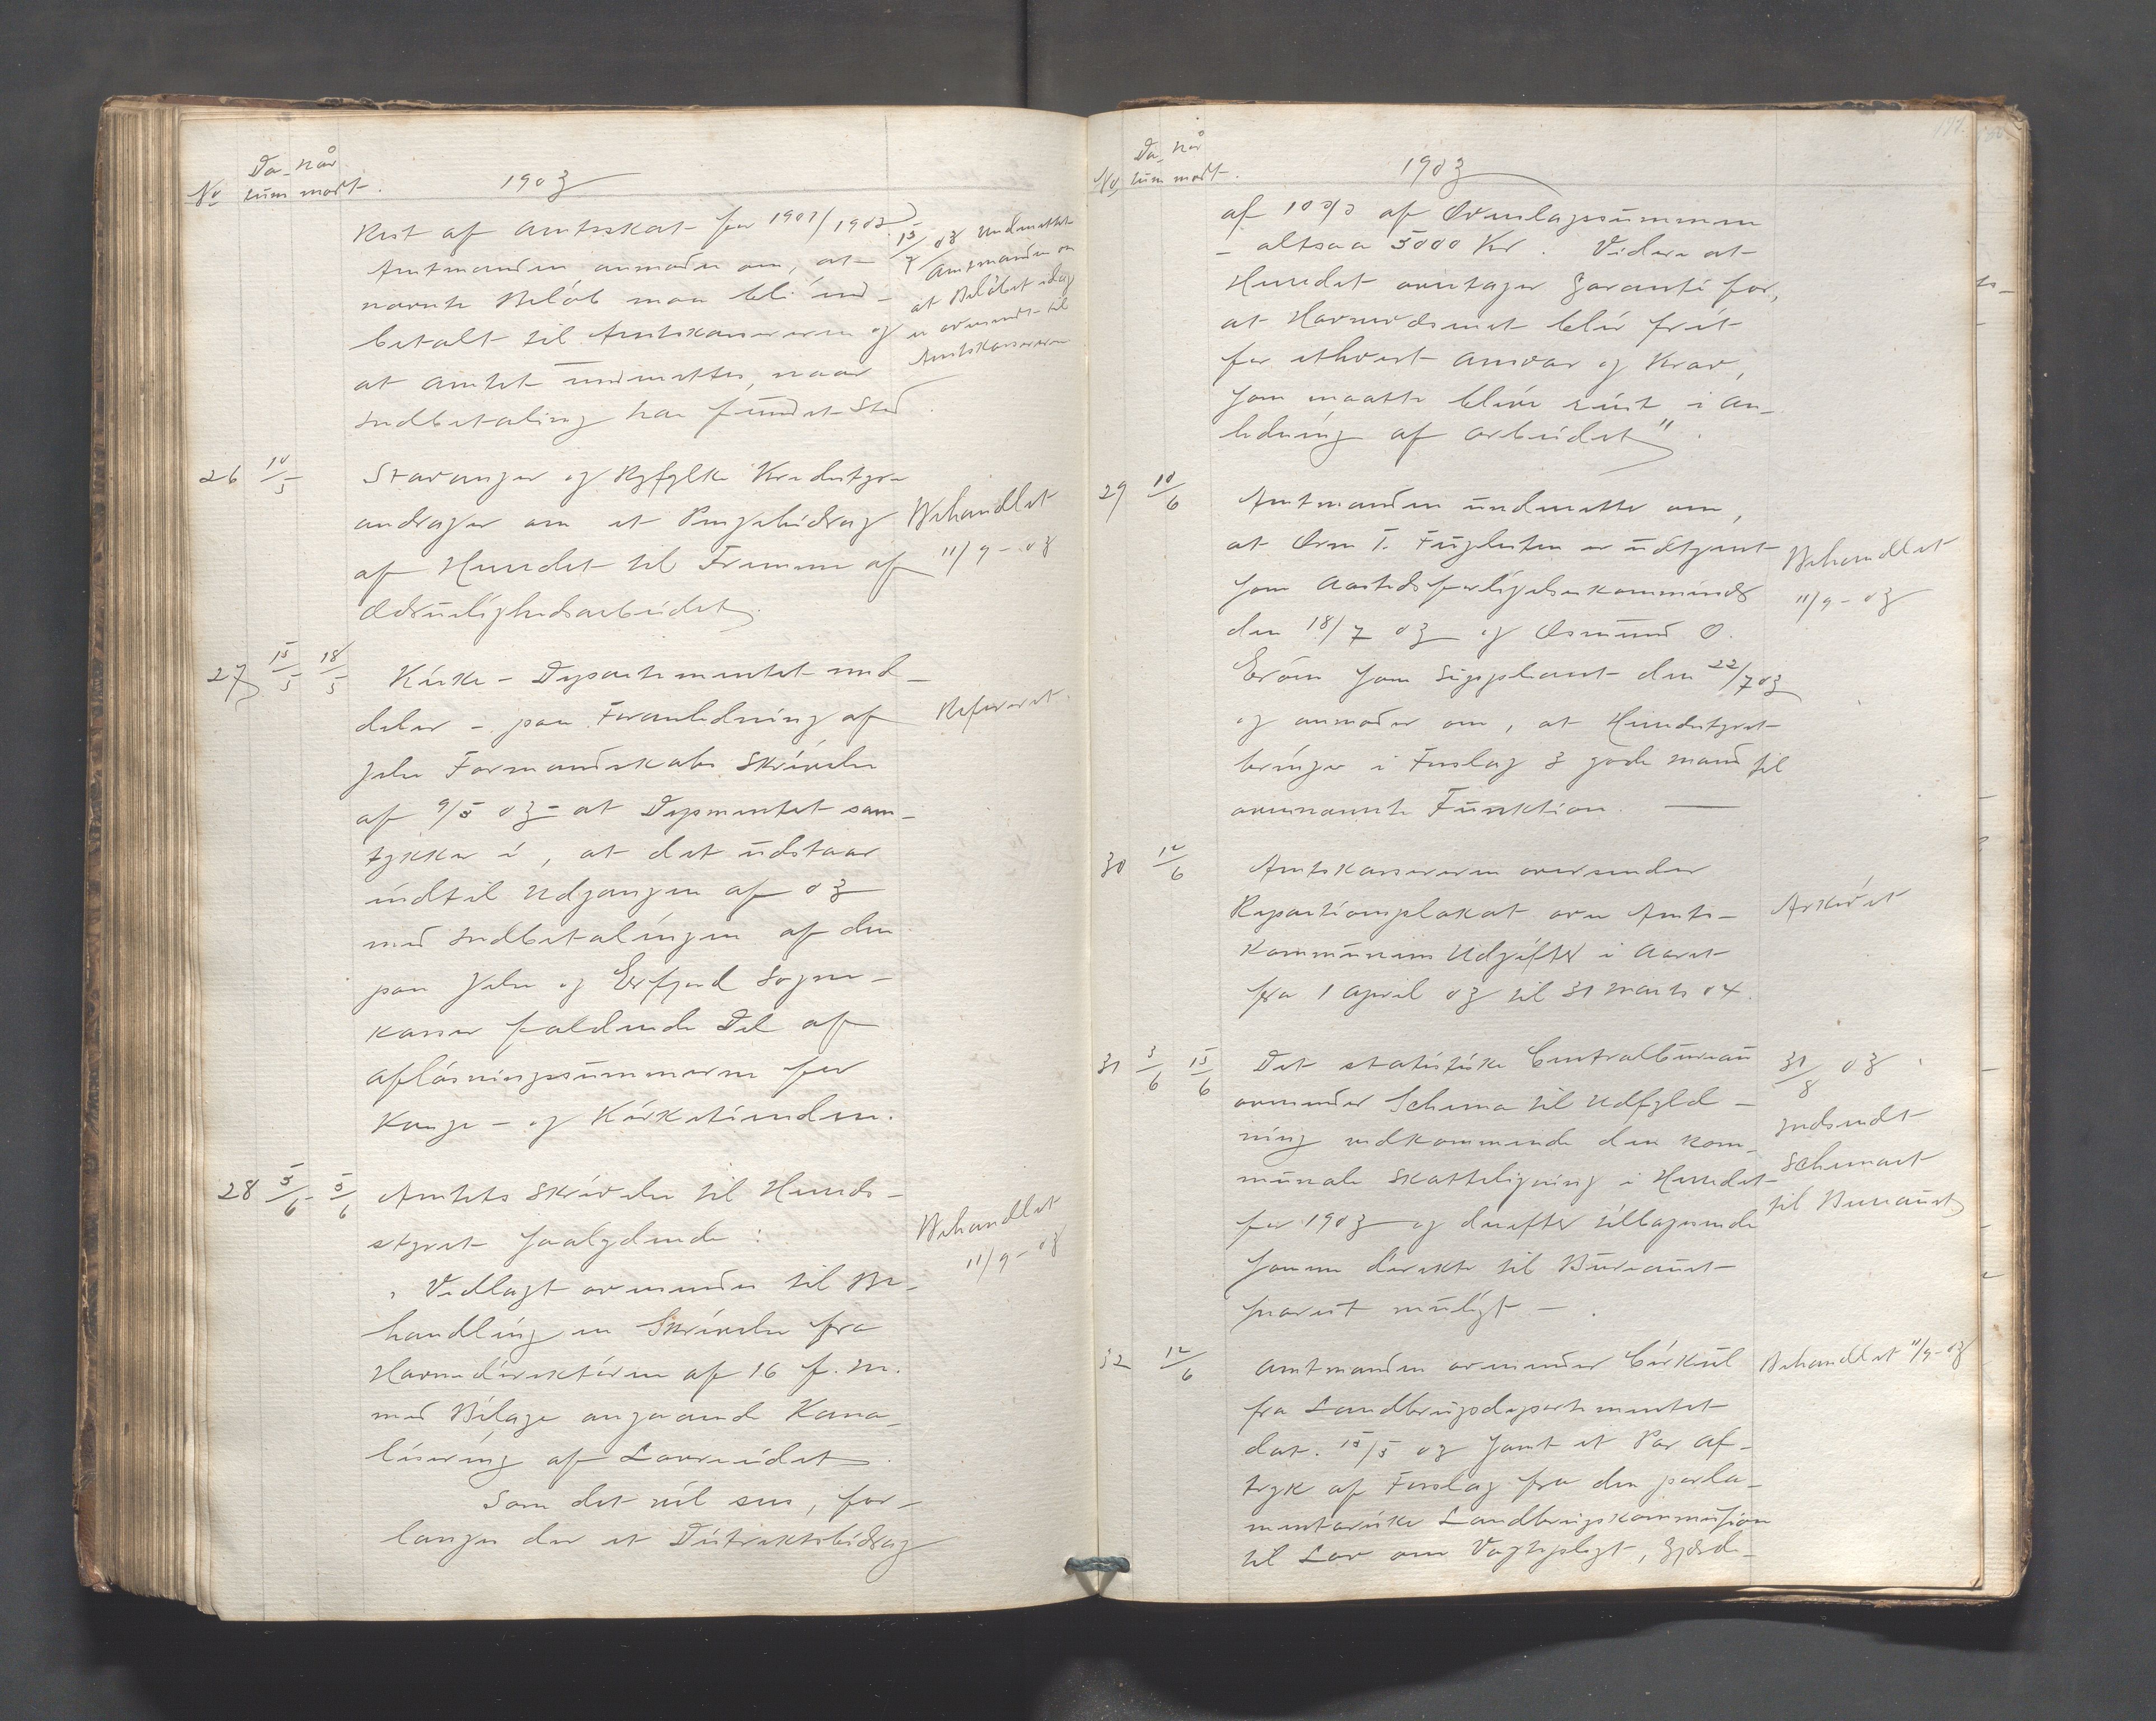 No Da- når
tum modt. 1903
Rest af Amtsskat for 1902/1903.
Amtmanden anmoder om, at
nævnte Beløb maa bli ind-
betalt til Amtskassereren og
at Amtet underrettes, naar
Indbetaling har fundet Sted.
15/7 03 Underrettet
Amtmanden om
at Beløbet idag
er oversendt til
Amtskassereren
26 10/5 Stavanger og Ryfylke Kredsstyre
andrager om et Pengebidrag
af Herredet til Fremme af
Ædruelighedsarbeidet.
Behandlet
11/9-03
27 15/5 18/5 Kirke-Departementet med-
deler - paa Foranledning af
Jelse Formandskabs Skrivelse
af 9/5 03 - at Depmentet sam-
tykker i, at det udstaar
indtil Udgangen af 03
med Indbetalingen af den
paa Jelse og Erfjord Sogne-
kasser faldende Del af
Afløsningssummerne for
Konge- og Kirketienden.
Refereret.
28 5/6 5/6 Amtets Skrivelse til Herreds-
styret saalydende:
"Vedlagt oversendes til Be-
handling en Skrivelse fra
Havnedirektøren af 16 f. M.
med Bilage angaaende Kana-
lisering af Lovreidet.
Som det vil sees, for-
langes der et Distriktsbidrag
Behandlet
11/9-03
No Da- når
tum modt. 1903
af 10 % af Overslagssummen
- altsaa 5000 Kr. Videre at
Herredet overtager Garanti for,
at Havnevæsenet blir frit
for ethvert Ansvar og Krav,
som maatte blive reist i An-
ledning af Arbeidet".
29 10/6 Amtmanden underretter om,
at Orm T. Fuglesten er udtjent
som Aastedsforligelseskommissær
den 18/7 03 og Osmund O.
Erøen som Suppleant den 22/7 03
og anmoder om, at Herredstyret
bringer i Forslag 3 gode Mænd til
ovennævnte Funktion.
Behandlet
11/9-03
30 12/6 Amtskassereren oversender
Repartionsplakat over Amts-
kommunens Udgifter i Aaret
fra 1 April 03 til 31 Marts 04.
Arkivet
31 3/6 15/6 Det statistiske Centralbureau
oversender Schema til Udfyld-
ning vedkommende den kom-
munale Skatteligning i Herredet
for 1903 og derefter tilbagesende
samme direkte til Bureauet
snarest muligt.
31/8 03
Indsendt
Schemaet
til Bureauet
32 12/6 Amtmanden oversender Cirkul
fra Landbrugsdepartementet
dat. 15/5 03 samt et Par Af-
tryk af Forslag fra den parla-
mentariske Landbrugskommission
til Lov om Vogtepligt, Gjærde-
Behandlet 11/9-03